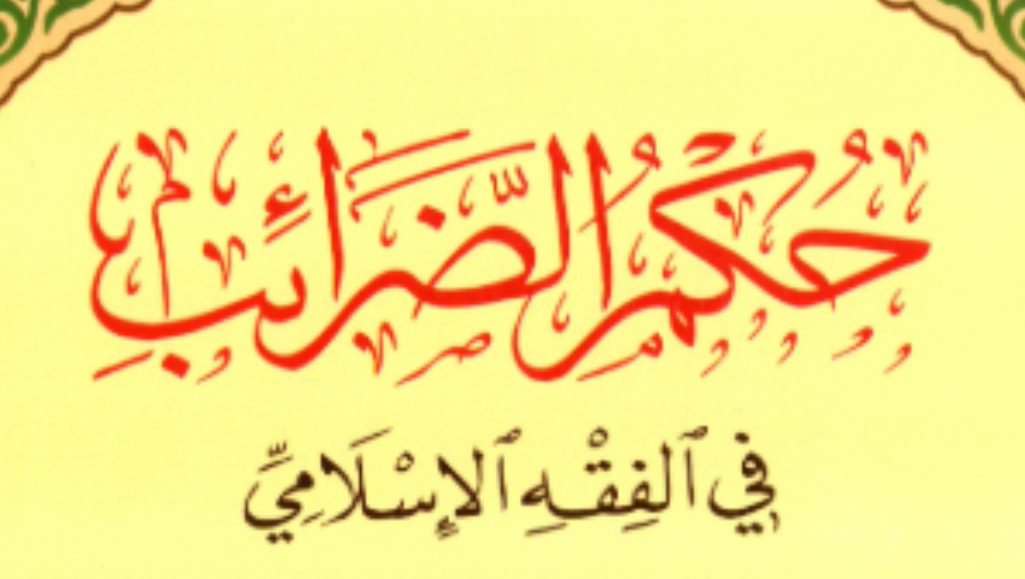 حُكْمُ الضَّرَائِبِ
فِي ٱلفِقْهِ ٱلإِسْلَامِيِّ